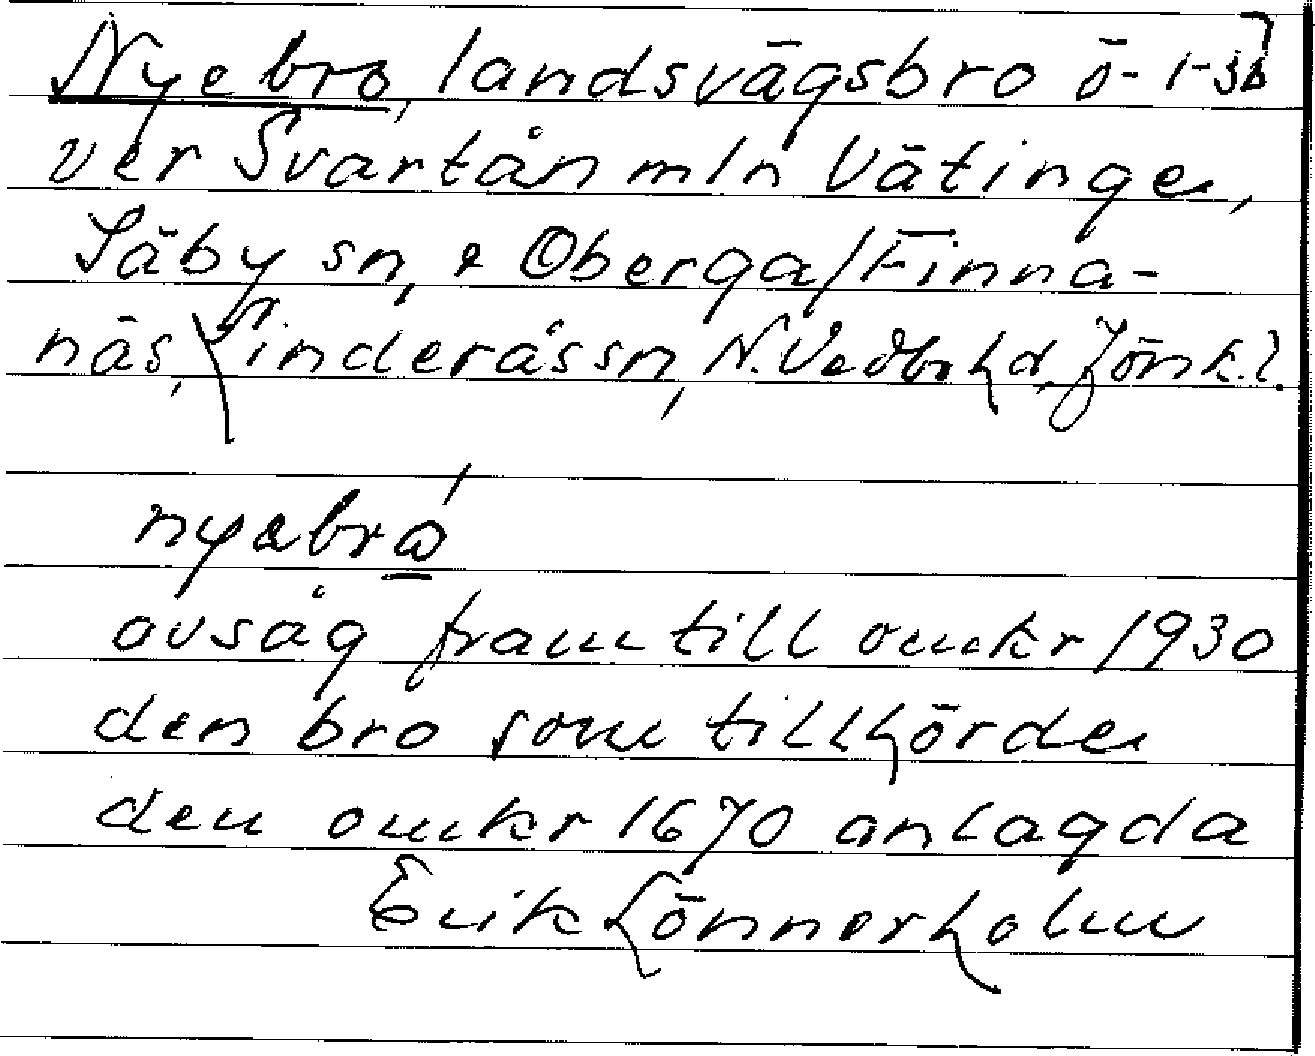 Nyebro, landsvägsbro ö- 1-3b
ver Svartån mln Vätinge,
Säby sn, & Oberga/Finna-
näs, Linderås sn, N. Vedbo hd, Jönk. l.
nyabro
avsåg fram till omkr 1930
den bro som tillhörde
den omkr 1670 anlagda
Erik Lönnerholm